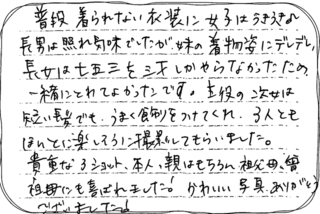 普段着られない衣装に女子はうきうき♪
長男は照れ気味でしたが妹の着物姿にデレデレ。
長女は七五三を三才しかやらなかったため、
一緒にとれてよかったです。主役の次女は
短い髪でも、うまく飾りをつけてくれ、3人とも
ほんとに楽しそうに撮影してもらいました。
貴重な3ショット、本人、親はもちろん、祖父母、曽
祖母にも喜ばれました! かわいい写真、ありがとう
ございました!